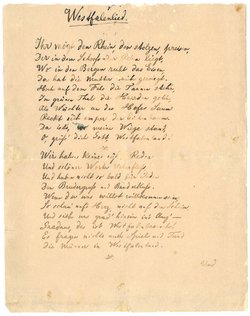 Westfalenlied.
Ihr mögt den Rhein, den stolzen, preisen,
Der in dem Schooß der Reben liegt,
Wo in den Bergen ruht das Eisen,
Da hat die Mutter mich gewiegt.
Hoch auf dem Fels die Tannen stehn,
Im grünen Thal die Heerden gehn,
Als Wächter an des Hofes Saum
Reckt sich empor der Eichenbaum
Da ist's, wo meine Wiege stand,
O grüß' dich Gott Westfalenland!
Wir haben keine süßen Reden
Und schöner Worte Ueberfluß
Und haben nicht so bald für Jeden
Den Brudergruß und Bruderkuß.
Wenn du uns willst willkommen sein,
So schau' aufs Herz, nicht auf den Schein
Und sieh uns grad' hinein ins Aug'
Gradaus das ist Westfalenbrauch!
Es fragen nichts nach Spiel und Tand
Die Männer in Westfalenland.